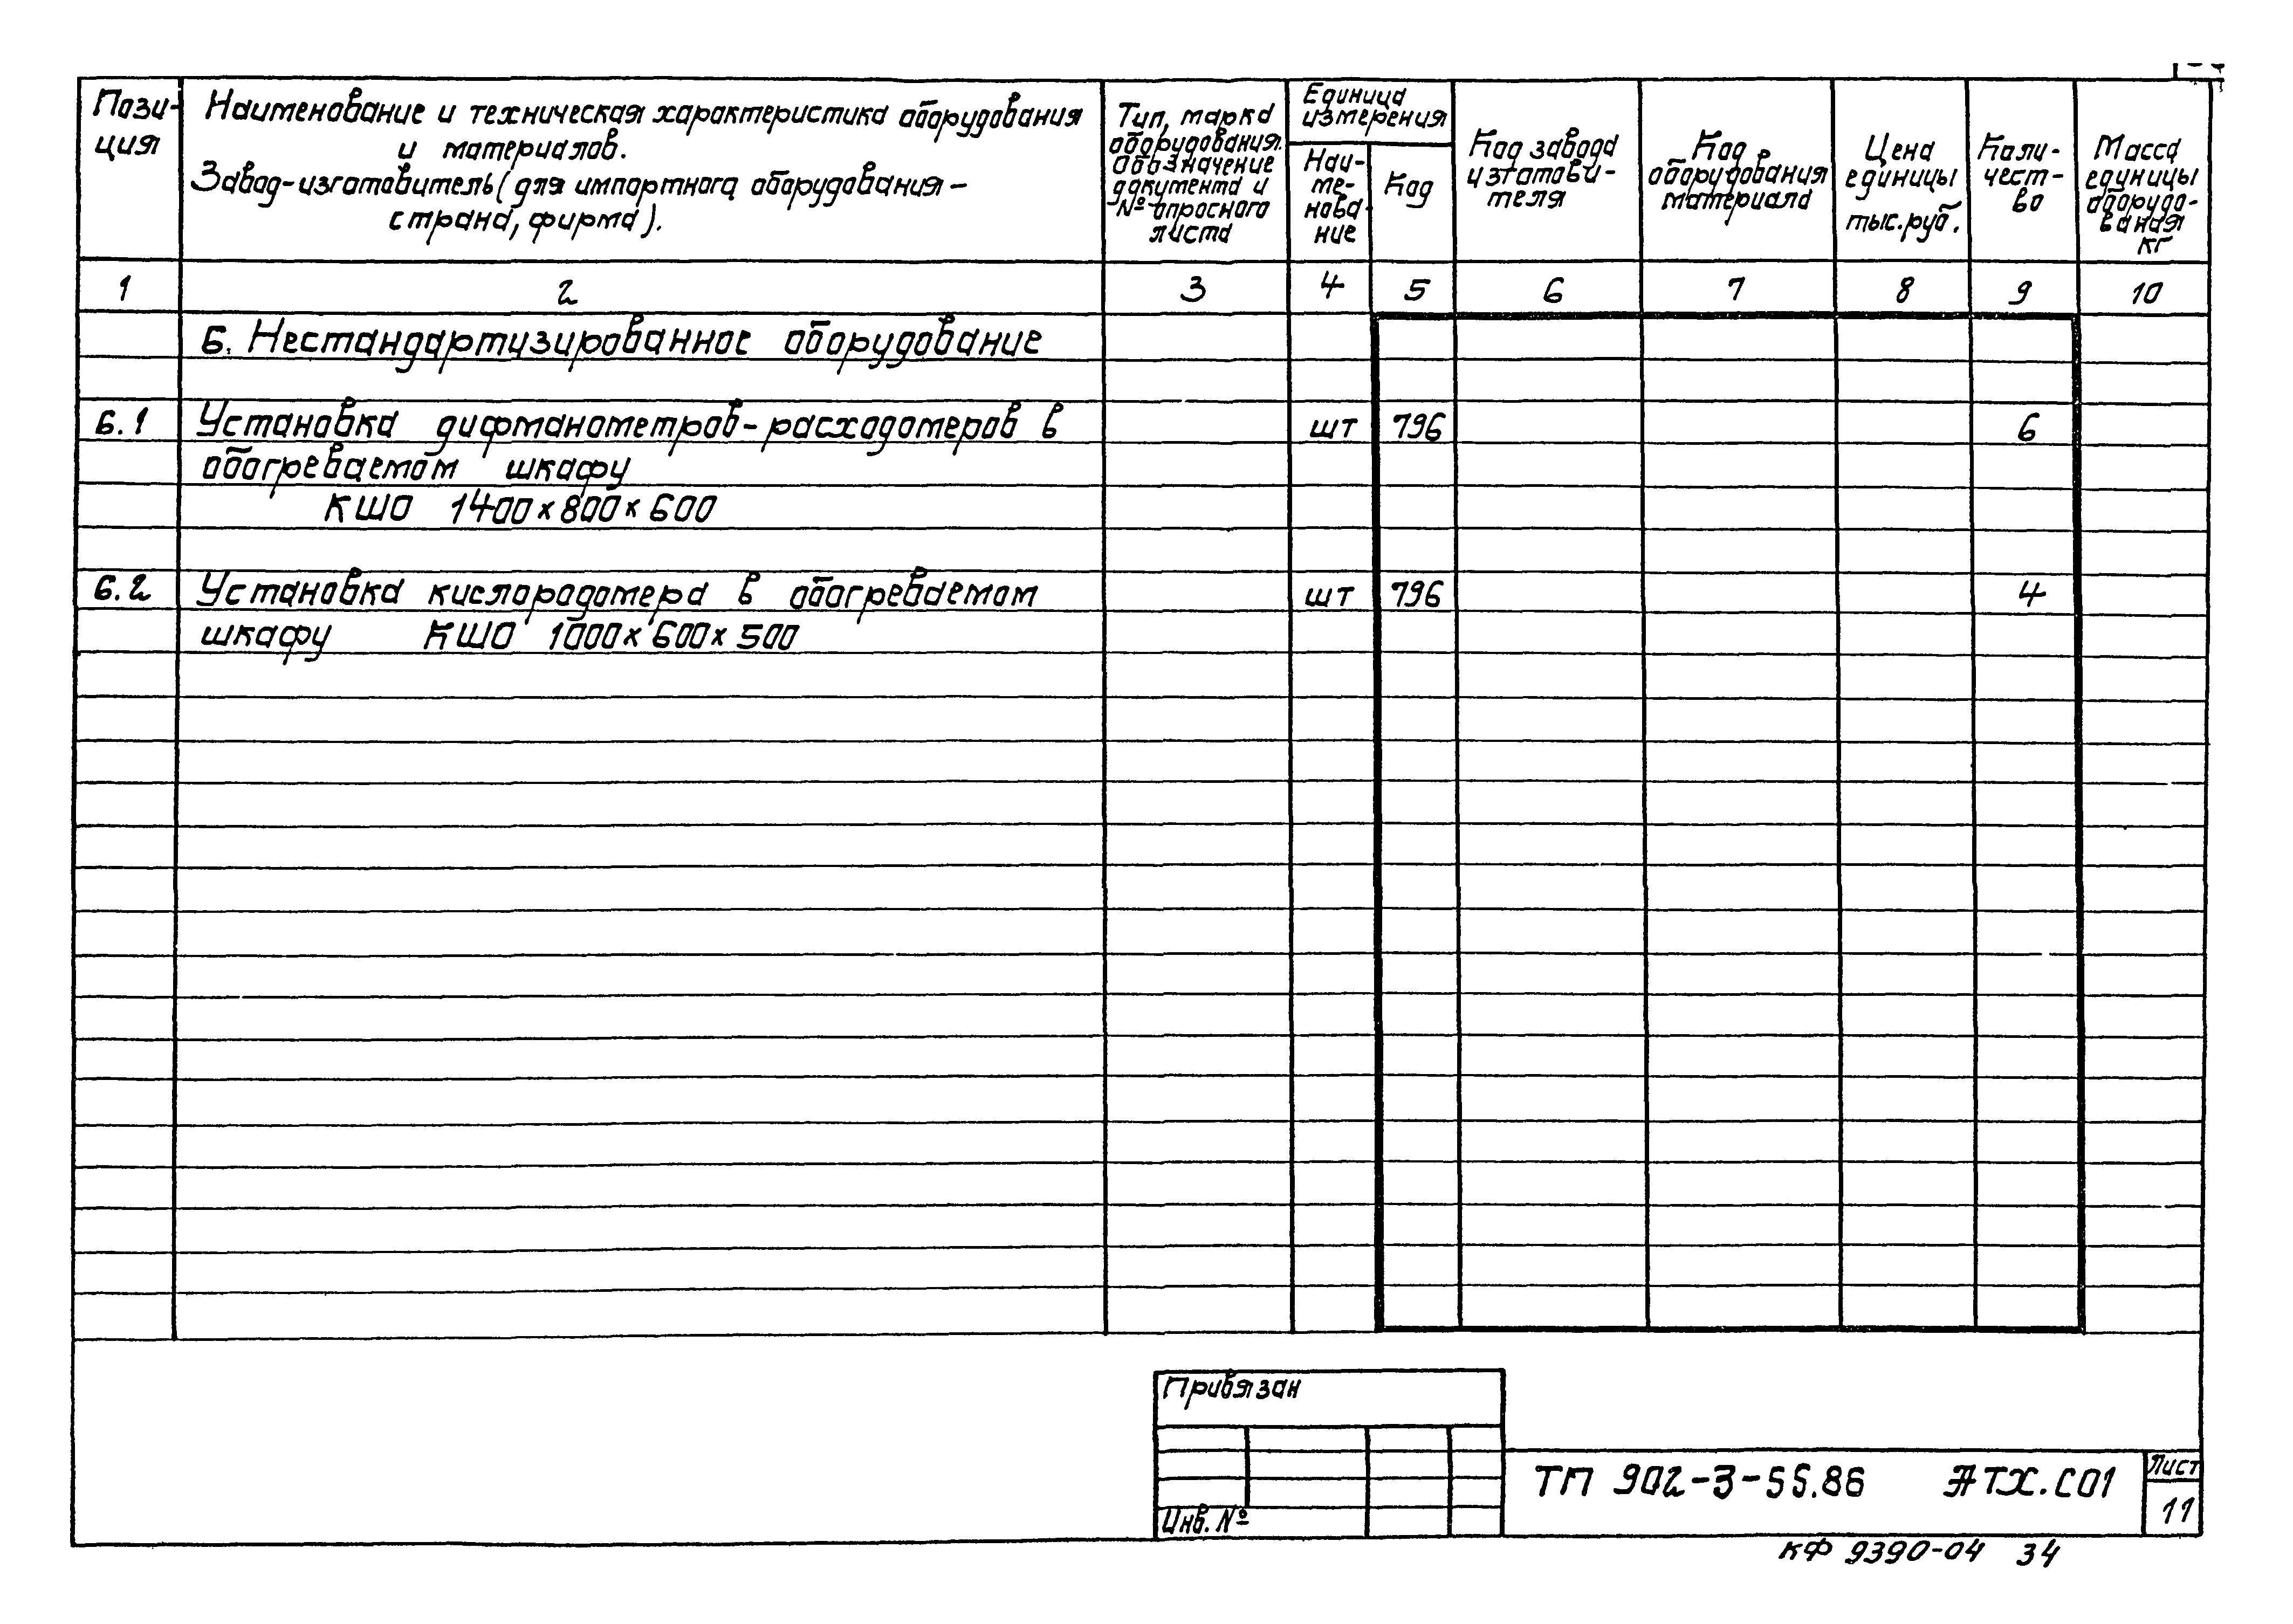 Пози-
ция
Наименование и техническая характеристика оборудования
и материалов.
Завод-изготовитель (для импортного оборудования-
страна, фирма).
Тип, марка
оборудования.
Обозначение
документа и
№ опросного
листа
Единица
измерения
Наи-
ме-
нова-
ние
Код
Код завода
изготови-
теля
Код
оборудования
материала
Цена
единицы
тыс. руб.
Коли-
чест-
во
Масса
единицы
оборудо-
вания
кг
1 2 3 4 5 6 7 8 9 10
6. Нестандартизированное оборудование
6.1 Установка дифманометров-расходомеров в шт 796 6
обогреваемом шкафу
КШО 1400×800×600
6.2 Установка кислородомера в обогреваемом шт 796 4
шкафу КШО 1000×600×500
Привязан
Инв. №
ТП 902-3-55.86 АТХ.С01
Лист
11
КФ 9390-04 34